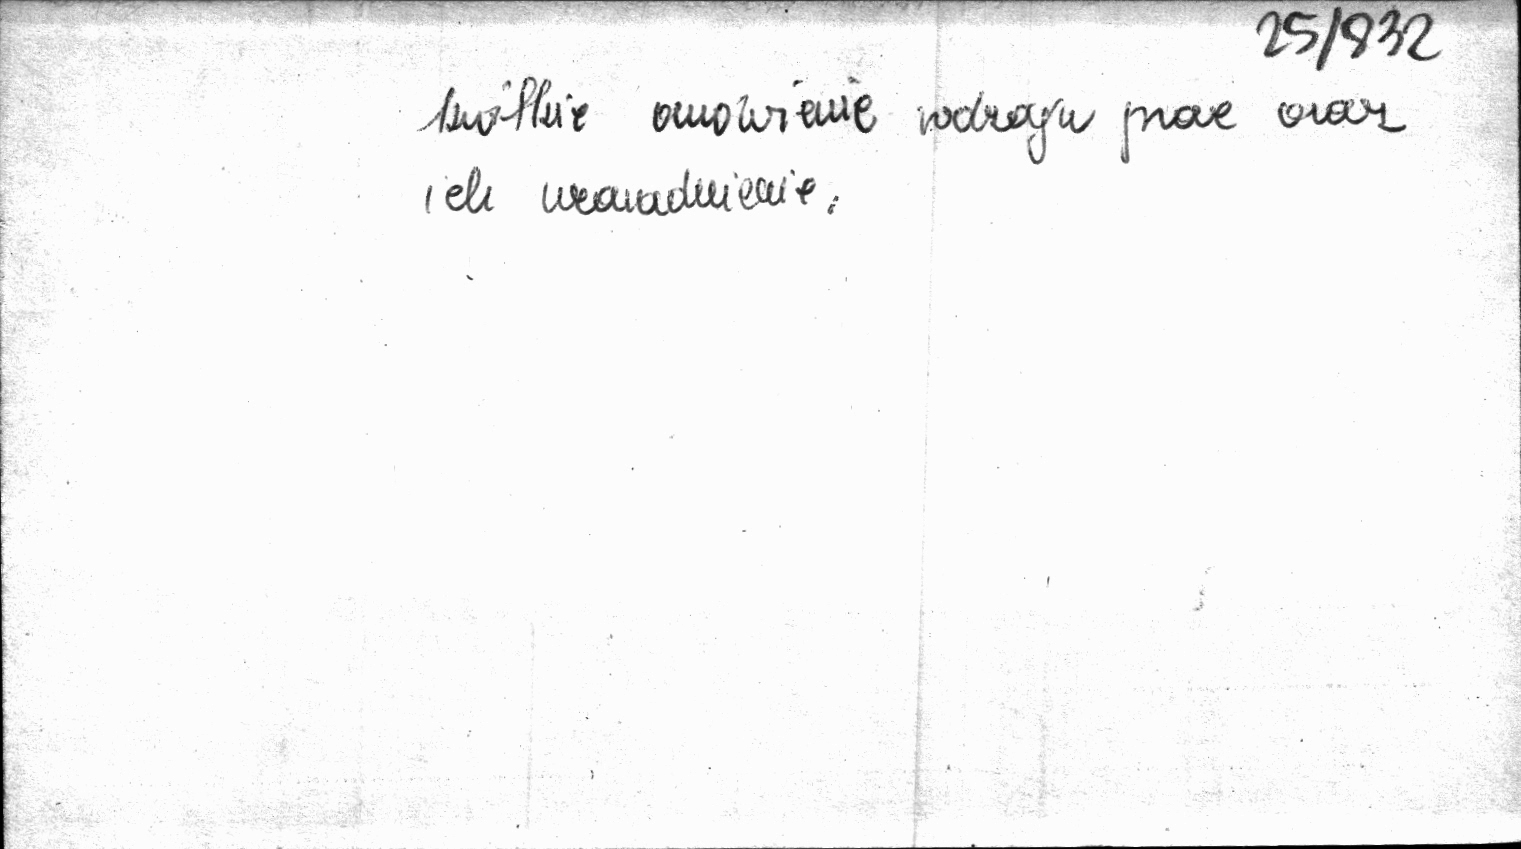 25/832
krótkie omówienie rodzaju prac oraz
ich uzasadnienie.